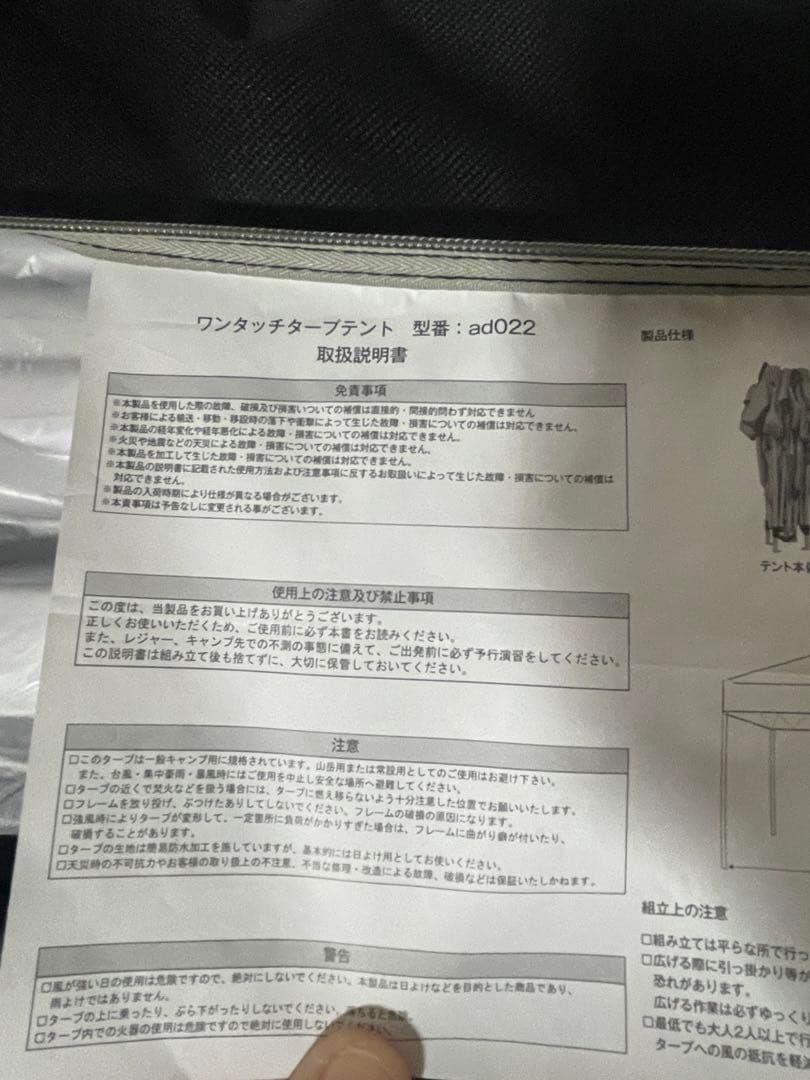 ワンタッチタープテント 型番：ad022
取扱説明書
免責事項
※本製品を使用した際の故障、破損及び損害いついての補償は直接的・間接的問わず対応できません
※お客様による輸送・移動・移設時の落下や衝撃によって生じた故障・損害についての補償は対応できません。
※本製品の経年変化や経年悪化による故障・損害についての補償は対応できません。
※火災や地震などの天災による故障・損害についての補償は対応できません。
※本製品を加工して生じた故障・損害についての補償は対応できません。
※本製品の説明書に記載された使用方法および注意事項に反するお取扱いによって生じた故障・損害についての補償は
対応できません。
※製品の入荷時期により仕様が異なる場合がございます。
※本責事項は予告なしに変更される事がございます。
使用上の注意及び禁止事項
この度は、当製品をお買い上げありがとうございます。
正しくお使いいただくため、ご使用前に必ず本書をお読みください。
また、レジャー、キャンプ先での不測の事態に備えて、ご出発前に必ず予行演習をしてください。
この説明書は組み立て後も捨てずに、大切に保管しておいてください。
注意
□このタープは一般キャンプ用に規格されています。山岳用または常設用としてのご使用はお避け下さい。
また、台風・集中豪雨・暴風時にはご使用を中止し安全な場所へ避難してください。
□タープの近くで焚火などを扱う場合には、タープに燃え移らないよう十分注意した位置でお願いいたします。
□フレームを放り投げ、ぶつけたありしてしないでください。フレームの破損の原因になります。
□強風時によりタープが変形して、一定箇所に負荷がかかりすぎた場合は、フレームに曲がり癖が付いたり、
破損することがあります。
□タープの生地は簡易防水加工を施していますが、基本的には日よけ用としてお使いください。
□天災時の不可抗力やお客様の取り扱上の不注意、不当な修理・改造による故障、破損などは保証いたしかねます。
警告
□風が強い日の使用は危険ですので、絶対にしないでください。本製品は日よけなどを目的とした商品であり、
雨よけではありません。
□タープの上に乗ったり、ぶら下がったりしないでください。
□タープ内での火器の使用は危険ですので絶対に使用しない
製品仕様
テント本体
組立上の注意
□組み立ては平らな所で行っ
□広げる際に引っ掛かり等が
恐れがあります。
広げる作業は必ずゆっくり
□最低でも大人2人以上で行
タープへの風の抵抗を軽減